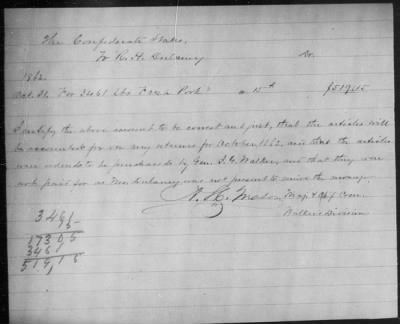 The Confederate States,
To R. H. Dulaney Dr.
1862
Oct. 31 For 3461 lbs Pork @ 15 cts $519.15
I certify the above account to be correct and just, that the articles will
be accounted for on my returns for October 1862, and that the articles
were ordered to be purchased by Gen. J. G. Walker, and that they were
not paid for as Dulaney was not present to receive the money.
Maj &
Walker's Division
3461
15
17305
3461
519,15